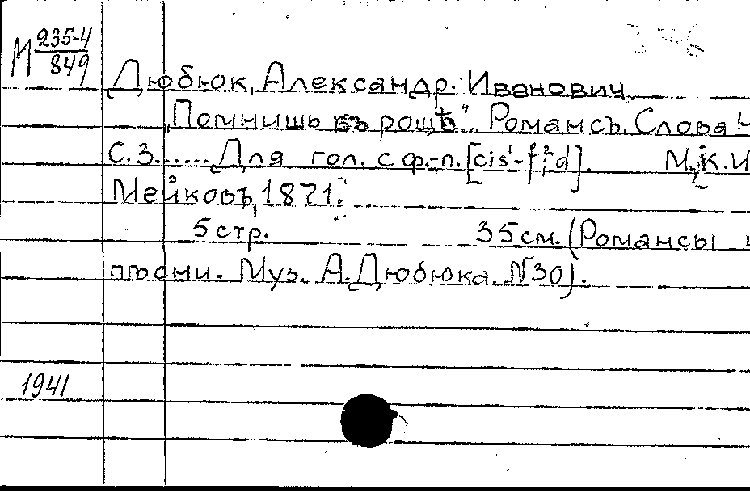 М 235-4
849
Дюбюк, Александр Иванович
„Помнишь въ рощѣ“. Романсъ. Слова
С. З...... Для гол. с ф.-п. [cis¹-f²; d]. М., К. И
Мейковъ, 1871.
5 стр. 35 см. (Романсы
пѣсни. Муз. А. Дюбюка. N 30).
1941